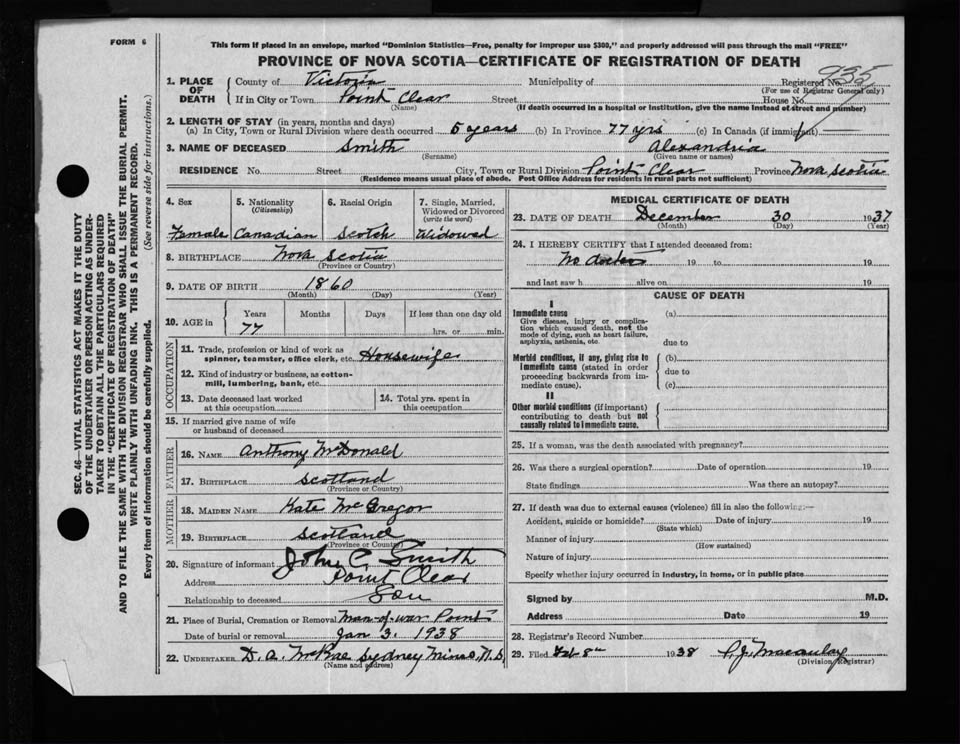 FORM 6
This form if placed in an envelope, marked "Dominion Statistics—Free, penalty for improper use $300," and properly addressed will pass through the mail "FREE"
PROVINCE OF NOVA SCOTIA—CERTIFICATE OF REGISTRATION OF DEATH
1. PLACE OF DEATH
County of Victoria Municipality of Registered No. 935
(For use of Registrar General only)
If in City or Town Point Clear Street House No.
(Name) (If death occurred in a hospital or institution, give the name instead of street and number)
2. LENGTH OF STAY (in years, months and days)
(a) In City, Town or Rural Division where death occurred 5 years (b) In Province 77 yrs (c) In Canada (if immigrant)
3. NAME OF DECEASED Smith Alexandria
(Surname) (Given name or names)
RESIDENCE No. Street City, Town or Rural Division Point Clear Province Nova Scotia
(Residence means usual place of abode. Post Office Address for residents in rural parts not sufficient)
4. Sex 5. Nationality (Citizenship) 6. Racial Origin 7. Single, Married, Widowed or Divorced (write the word)
Female Canadian Scotch Widowed
8. BIRTHPLACE Nova Scotia
(Province or Country)
9. DATE OF BIRTH 1860
(Month) (Day) (Year)
10. AGE in Years Months Days If less than one day old
77 hrs. or min.
OCCUPATION
11. Trade, profession or kind of work as spinner, teamster, office clerk, etc. Housewife
12. Kind of industry or business, as cotton-mill, lumbering, bank, etc.
13. Date deceased last worked at this occupation
14. Total yrs. spent in this occupation
15. If married give name of wife or husband of deceased
FATHER
16. NAME Anthony McDonald
17. BIRTHPLACE Scotland
(Province or Country)
MOTHER
18. MAIDEN NAME Kate McGregor
19. BIRTHPLACE Scotland
(Province or Country)
20. Signature of informant John C. Smith
Address Point Clear
Relationship to deceased Son
21. Place of Burial, Cremation or Removal Man-of-war Point
Date of burial or removal Jan 3. 1938
22. UNDERTAKER D. A. McRae Sydney Mines, N.S.
(Name and address)
MEDICAL CERTIFICATE OF DEATH
23. DATE OF DEATH December 30 1937
(Month) (Day) (Year)
24. I HEREBY CERTIFY that I attended deceased from:
No doctor 19 to 19
and last saw h alive on 19
CAUSE OF DEATH
I
Immediate cause (a)
Give disease, injury or complication which caused death, not the mode of dying, such as heart failure, asphyxia, asthenia, etc.
due to
Morbid conditions, if any, giving rise to immediate cause (stated in order proceeding backwards from immediate cause).
(b)
due to
(c)
II
Other morbid conditions (if important) contributing to death but not causally related to immediate cause.
25. If a woman, was the death associated with pregnancy?
26. Was there a surgical operation? Date of operation 19
State findings Was there an autopsy?
27. If death was due to external causes (violence) fill in also the following:—
Accident, suicide or homicide? Date of injury 19
(State which)
Manner of injury
(How sustained)
Nature of injury
Specify whether injury occurred in industry, in home, or in public place
Signed by M.D.
Address Date 19
28. Registrar's Record Number
29. Filed Feb 8th 1938 P.J. Macaulay
(Division Registrar)
SEC. 46—VITAL STATISTICS ACT MAKES IT THE DUTY
OF THE UNDERTAKER OR PERSON ACTING AS UNDER-
TAKER TO OBTAIN ALL THE PARTICULARS REQUIRED
IN THE "CERTIFICATE OF REGISTRATION OF DEATH"
AND TO FILE THE SAME WITH THE DIVISION REGISTRAR WHO SHALL ISSUE THE BURIAL PERMIT.
WRITE PLAINLY WITH UNFADING INK. THIS IS A PERMANENT RECORD.
Every item of information should be carefully supplied. (See reverse side for instructions.)